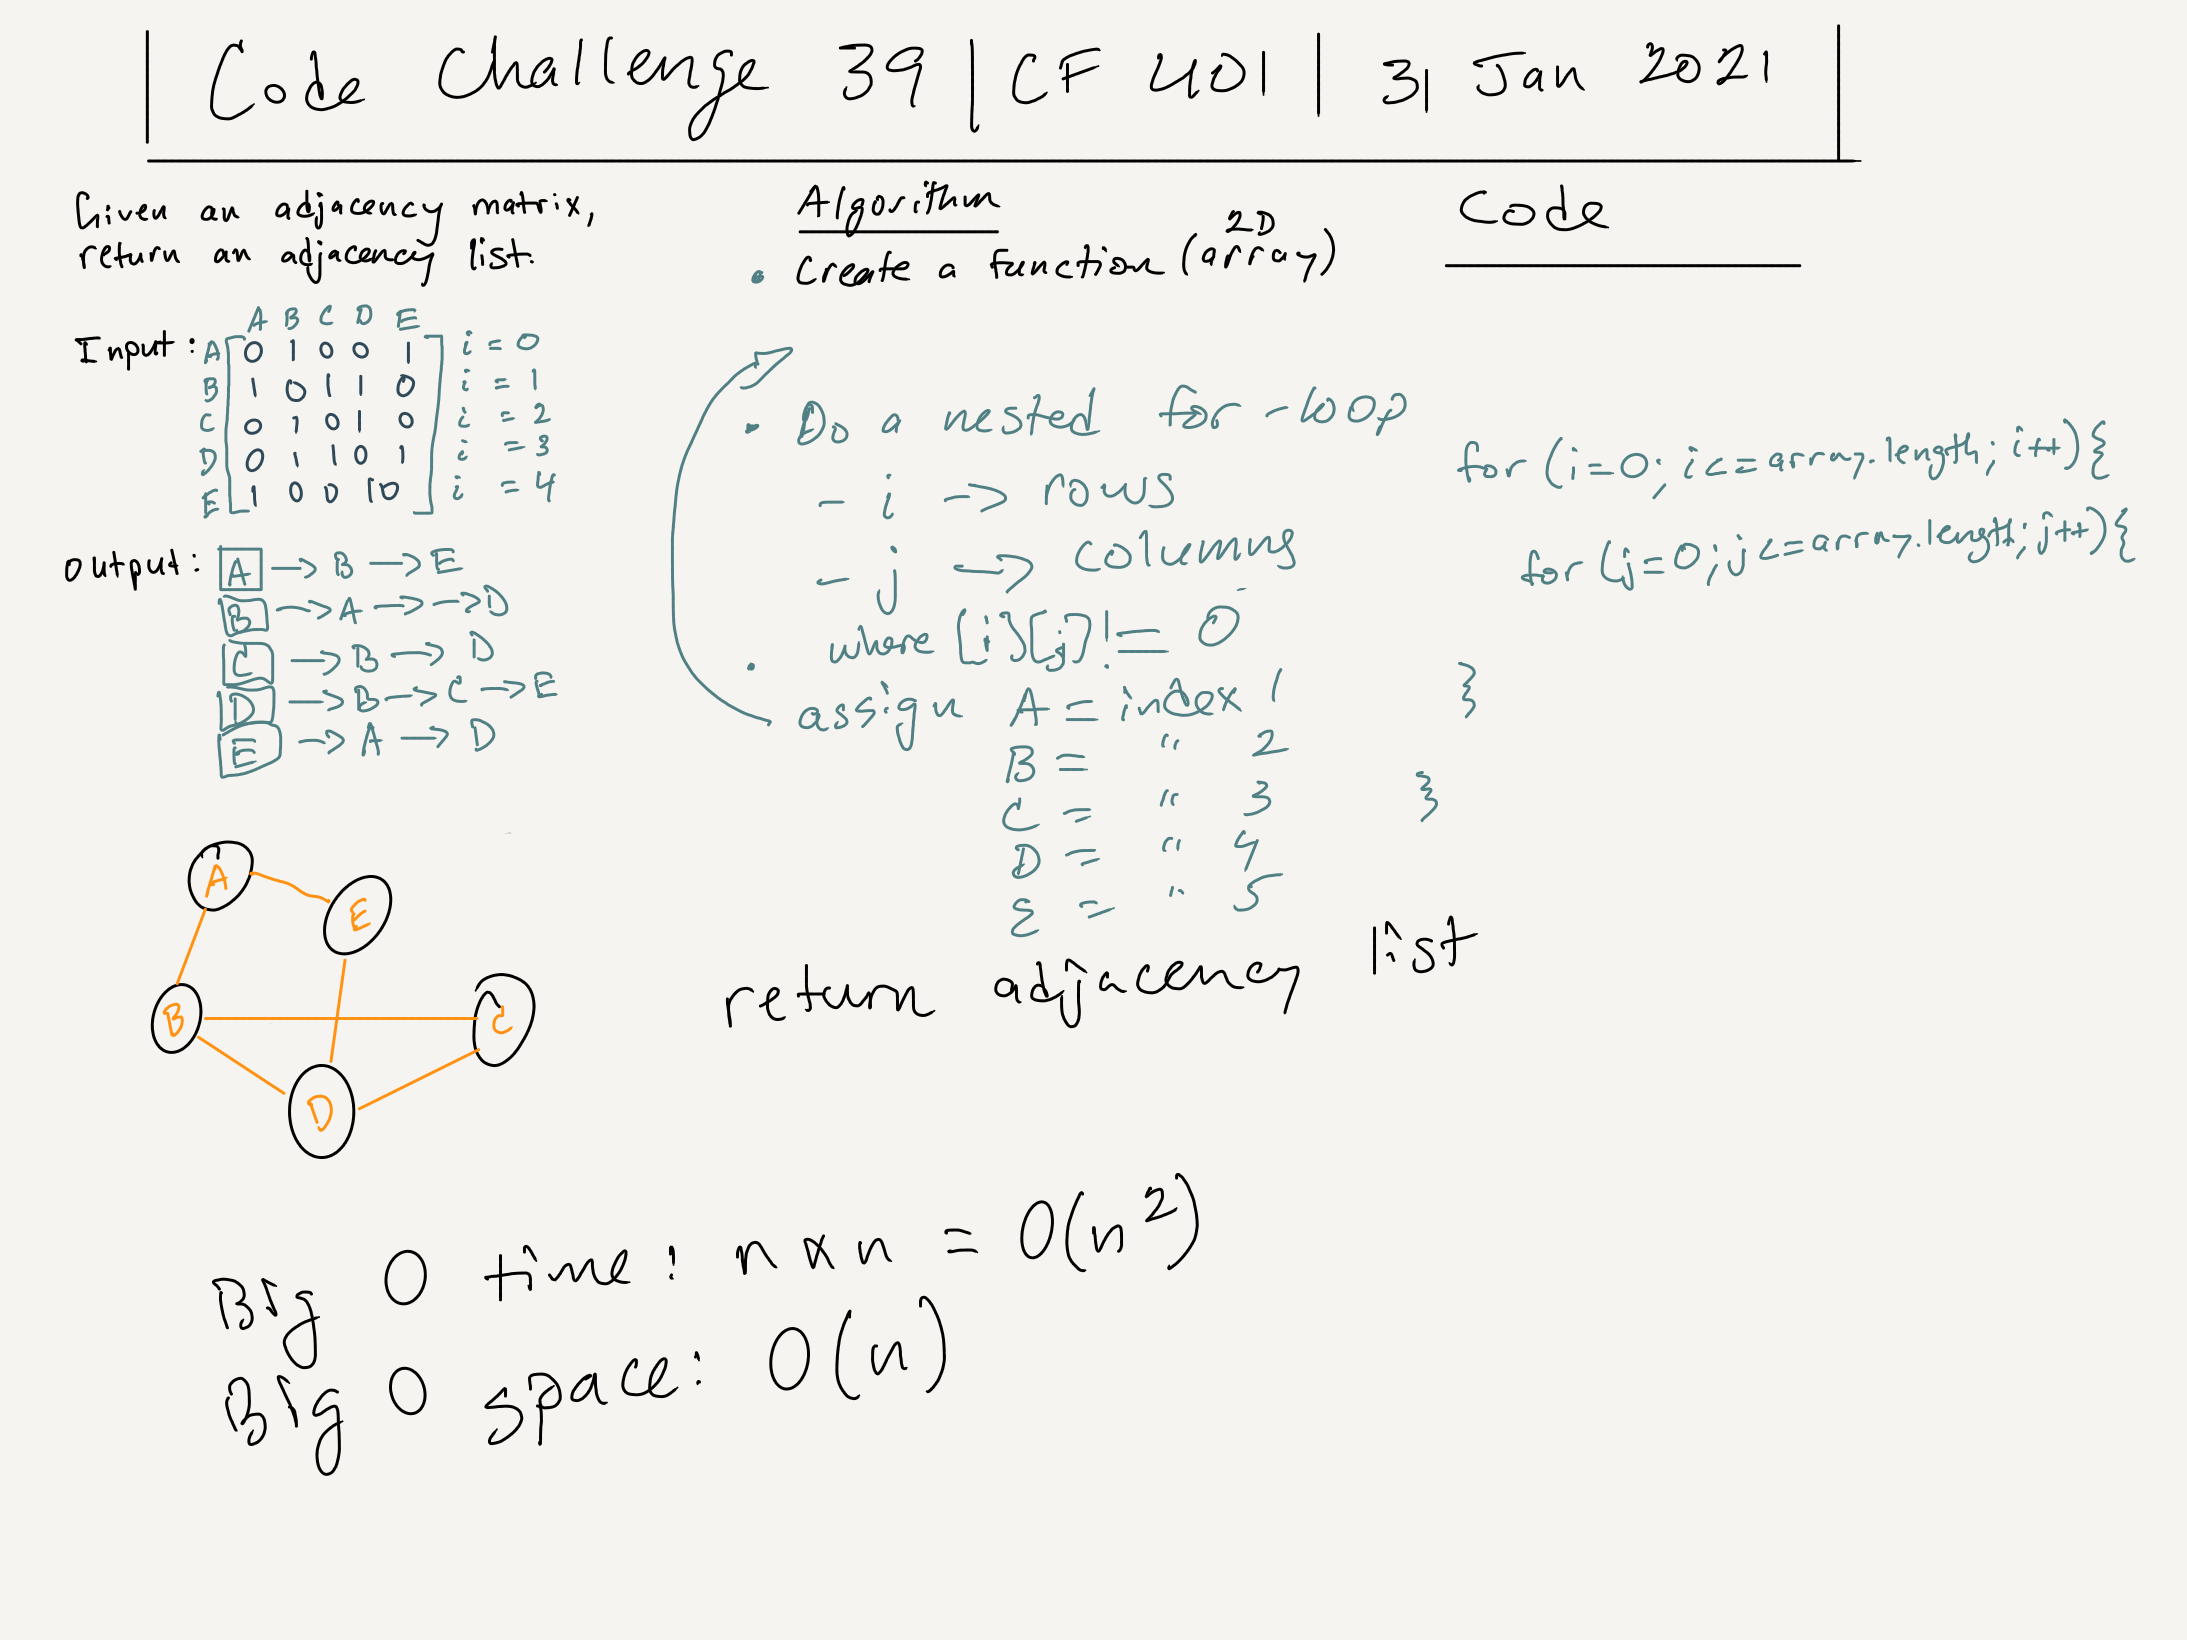 Code Challenge 39 | CF 401 | 31 Jan 2021
Given an adjacency matrix,
return an adjacency list.
A B C D E
Input: A 0 1 0 0 1 i = 0
B 1 0 1 1 0 i = 1
C 0 1 0 1 0 i = 2
D 0 1 1 0 1 i = 3
E 1 0 0 1 0 i = 4
Output: A → B → E
B → A → → D
C → B → D
D → B → C → E
E → A → D
A
E
B
C
D
Algorithm
2D
• Create a function (array)
• Do a nested for-loop
- i -> rows
- j -> columns
• where [i][j] != 0
assign A = index 1
B = " 2
C = " 3
D = " 4
E = " 5
return adjacency list
Code
for (i=0; i<=array.length; i++){
for (j=0; j<=array.length; j++){
}
}
Big O time: n x n = O(n²)
Big O space: O(n)